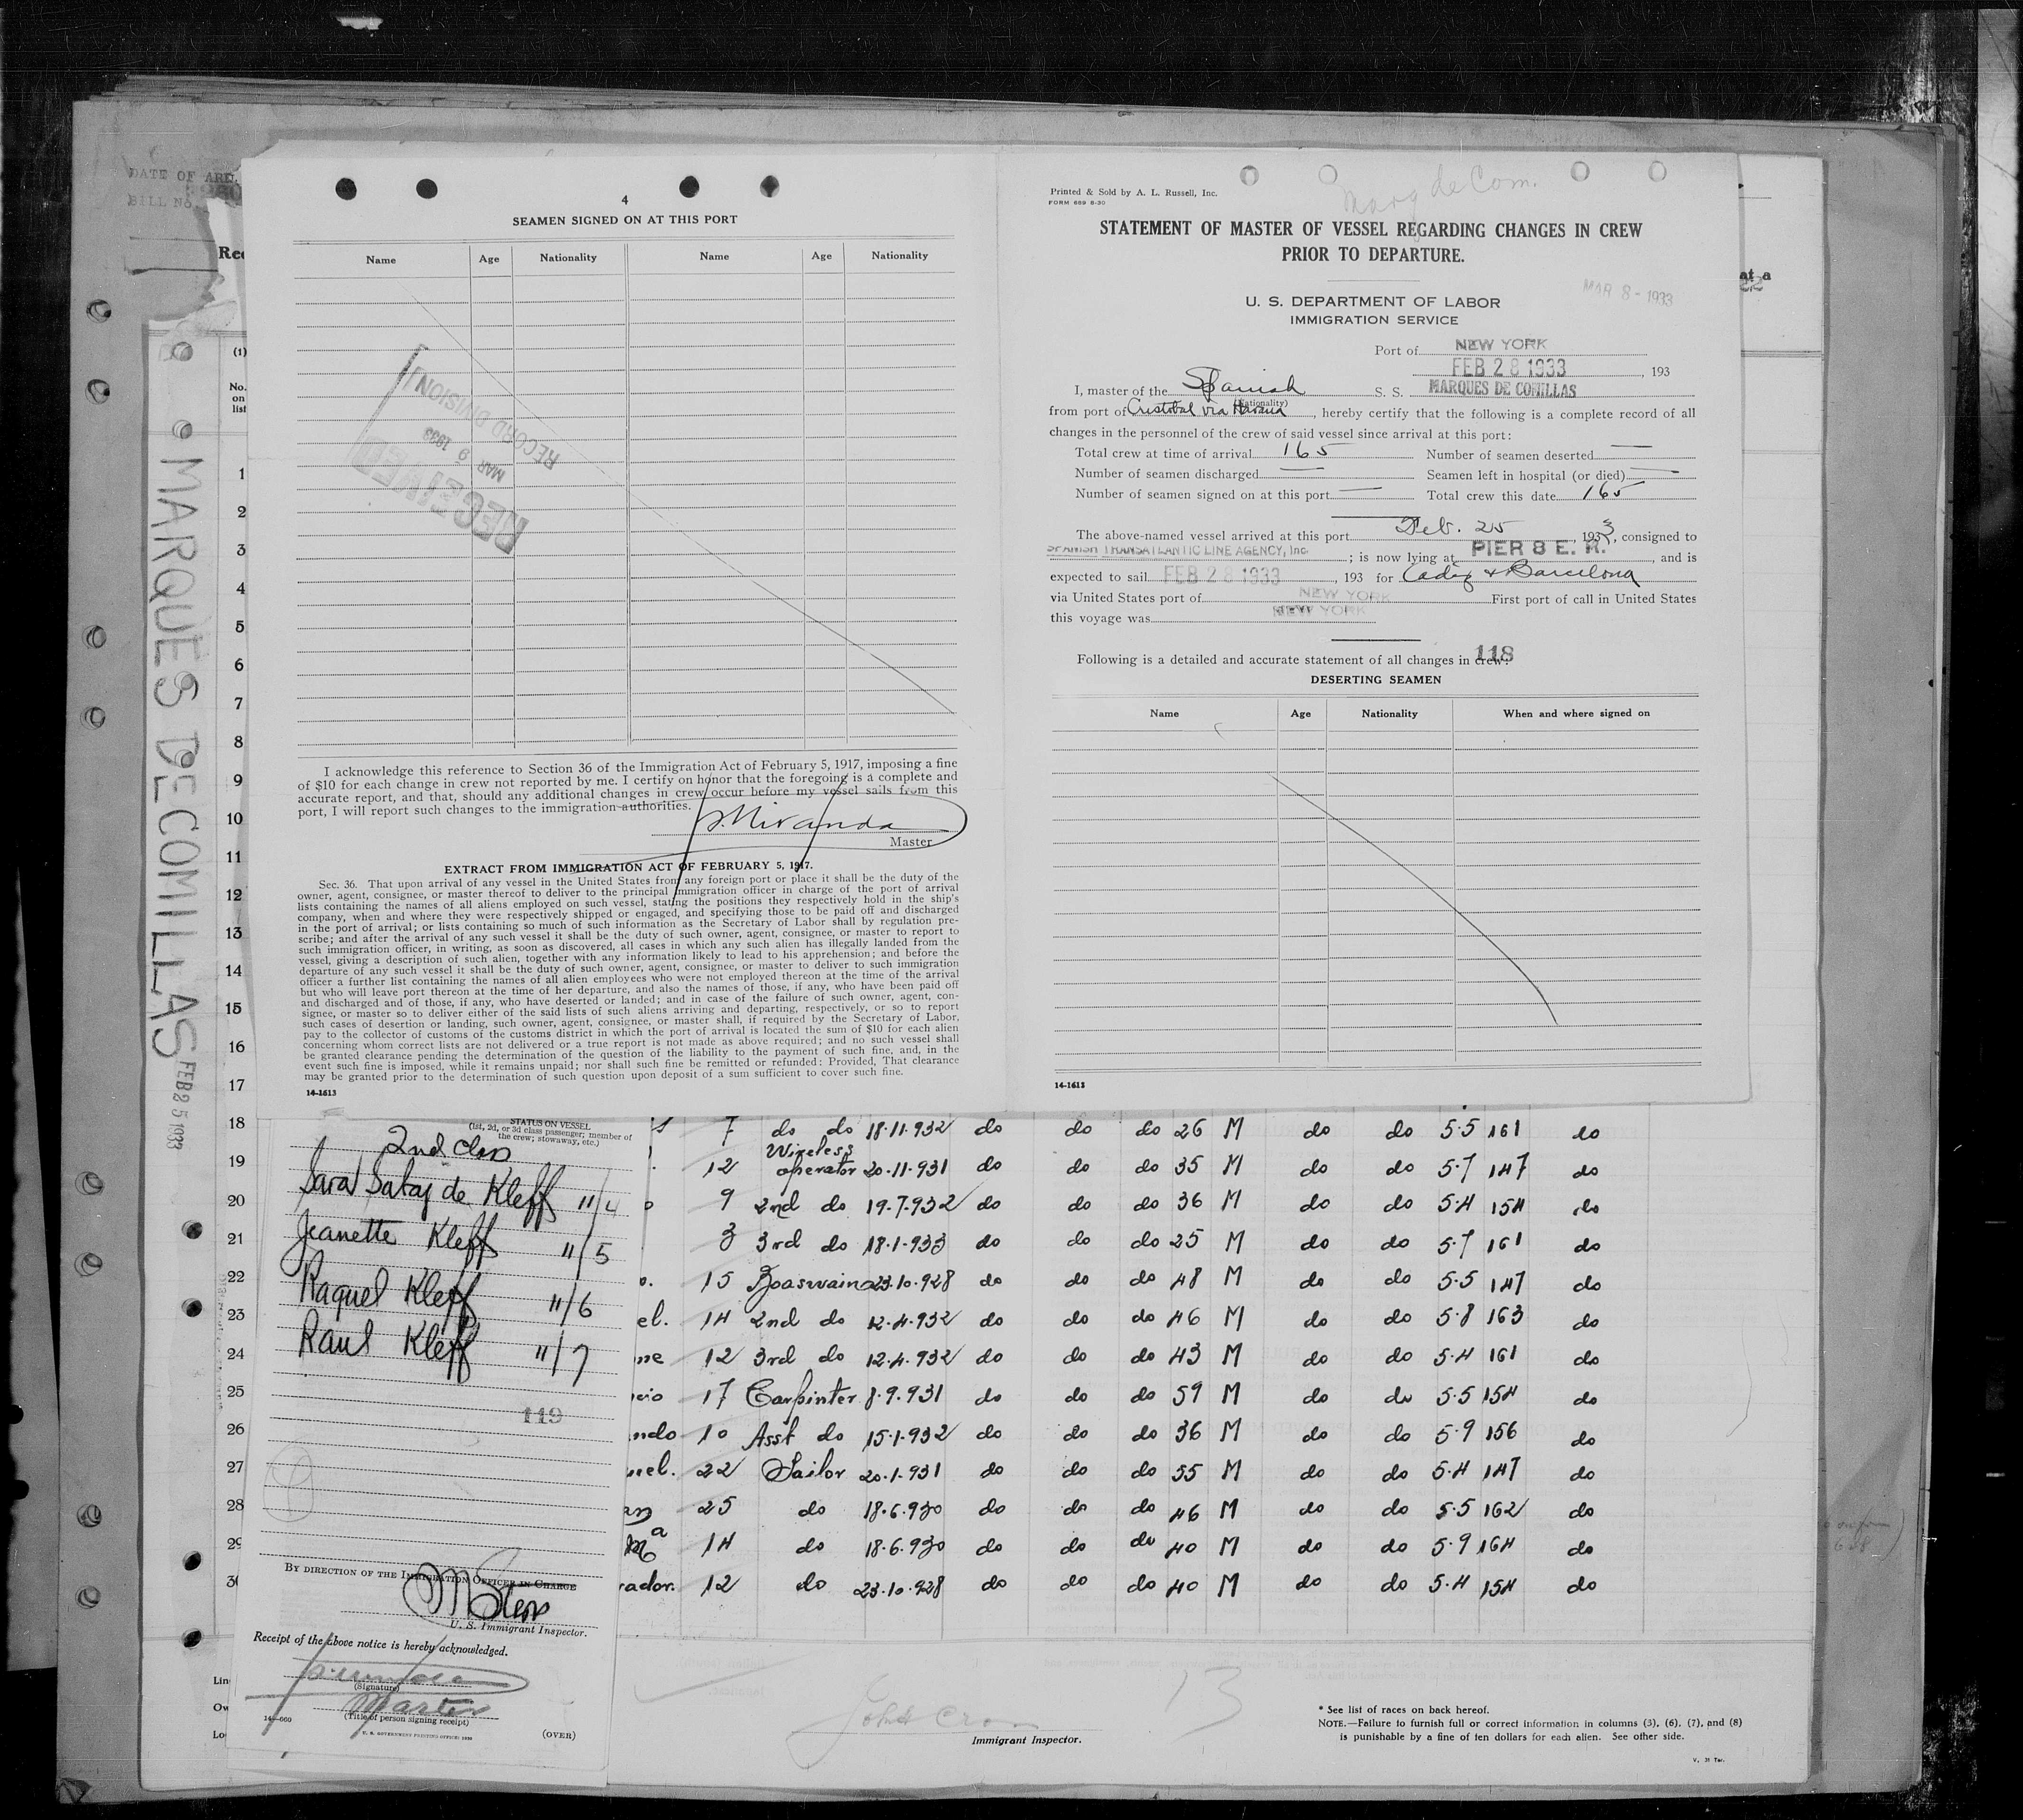 DATE OF ARR.
BILL No.
Rec
4
SEAMEN SIGNED ON AT THIS PORT
Name Age Nationality Name Age Nationality
RECEIVED
MAR 9 1933
RECORD DIVISION
I acknowledge this reference to Section 36 of the Immigration Act of February 5, 1917, imposing a fine
of $10 for each change in crew not reported by me. I certify on honor that the foregoing is a complete and
accurate report, and that, should any additional changes in crew occur before my vessel sails from this
port, I will report such changes to the immigration authorities.
Miranda
Master
EXTRACT FROM IMMIGRATION ACT OF FEBRUARY 5, 1917.
Sec. 36. That upon arrival of any vessel in the United States from any foreign port or place it shall be the duty of the
owner, agent, consignee, or master thereof to deliver to the principal immigration officer in charge of the port of arrival
lists containing the names of all aliens employed on such vessel, stating the positions they respectively hold in the ship's
company, when and where they were respectively shipped or engaged, and specifying those to be paid off and discharged
in the port of arrival; or lists containing so much of such information as the Secretary of Labor shall by regulation pre-
scribe; and after the arrival of any such vessel it shall be the duty of such owner, agent, consignee, or master to report to
such immigration officer, in writing, as soon as discovered, all cases in which any such alien has illegally landed from the
vessel, giving a description of such alien, together with any information likely to lead to his apprehension; and before the
departure of any such vessel it shall be the duty of such owner, agent, consignee, or master to deliver to such immigration
officer a further list containing the names of all alien employees who were not employed thereon at the time of the arrival
but who will leave port thereon at the time of her departure, and also the names of those, if any, who have been paid off
and discharged and of those, if any, who have deserted or landed; and in case of the failure of such owner, agent, con-
signee, or master so to deliver either of the said lists of such aliens arriving and departing, respectively, or so to report
such cases of desertion or landing, such owner, agent, consignee, or master shall, if required by the Secretary of Labor,
pay to the collector of customs of the customs district in which the port of arrival is located the sum of $10 for each alien
concerning whom correct lists are not delivered or a true report is not made as above required; and no such vessel shall
be granted clearance pending the determination of the question of the liability to the payment of such fine, and, in the
event such fine is imposed, while it remains unpaid; nor shall such fine be remitted or refunded: Provided, That clearance
may be granted prior to the determination of such question upon deposit of a sum sufficient to cover such fine.
14-1613
Marq de Com.
Printed & Sold by A. L. Russell, Inc.
FORM 689 8-30
STATEMENT OF MASTER OF VESSEL REGARDING CHANGES IN CREW
PRIOR TO DEPARTURE.
MAR 8 - 1933
U. S. DEPARTMENT OF LABOR
IMMIGRATION SERVICE
Port of NEW YORK
FEB 28 1933 , 193
I, master of the Spanish S. S. MARQUES DE COMILLAS
(Nationality)
from port of Cristobal via Havana , hereby certify that the following is a complete record of all
changes in the personnel of the crew of said vessel since arrival at this port:
Total crew at time of arrival 165 Number of seamen deserted —
Number of seamen discharged — Seamen left in hospital (or died) —
Number of seamen signed on at this port — Total crew this date 165
The above-named vessel arrived at this port Feb. 25 , 1933, consigned to
SPANISH TRANSATLANTIC LINE AGENCY, Inc. ; is now lying at PIER 8 E. R. , and is
expected to sail FEB 28 1933 , 193 for Cadiz & Barcelona
via United States port of NEW YORK First port of call in United States
this voyage was NEW YORK
Following is a detailed and accurate statement of all changes in crew:
118
DESERTING SEAMEN
Name Age Nationality When and where signed on
14-1613
at a
22
MARQUES DE COMILLAS FEB 25 1933
(1)
No.
on
list
1
2
3
4
5
6
7
8
9
10
11
12
13
14
15
16
17
18 7 do do 18.11.932 do do do 26 M do do 5.5 161 do
19 12 Wireless operator 20.11.931 do do do 35 M do do 5.7 147 do
20 9 2nd do 19.7.932 do do do 36 M do do 5.4 154 do
21 3 3rd do 18.1.933 do do do 25 M do do 5.7 161 do
22 15 Boaswain 23.10.928 do do do 48 M do do 5.5 147 do
23 el. 14 2nd do 12.4.932 do do do 46 M do do 5.8 163 do
24 ne 12 3rd do 12.4.932 do do do 43 M do do 5.4 161 do
25 cio 17 Carpinter 8.9.931 do do do 59 M do do 5.5 154 do
26 ndo 10 Asst do 15.1.932 do do do 36 M do do 5.9 156 do
27 uel. 22 Sailor 20.1.931 do do do 35 M do do 5.4 147 do
28 an 25 do 18.6.930 do do do 46 M do do 5.5 162 do
29 Mª 14 do 18.6.930 do do do 40 M do do 5.9 164 do
30 rador. 12 do 23.10.928 do do do 40 M do do 5.4 154 do
STATUS ON VESSEL
(1st, 2d, or 3d class passenger; member of
the crew; stowaway, etc.)
2nd class
Sara Sabaj de Kleff "/4
Jeanette Kleff "/5
Raquel Kleff "/6
Raul Kleff "/7
119
BY DIRECTION OF THE IMMIGRATION OFFICER IN CHARGE
U. S. Immigrant Inspector.
Receipt of the above notice is hereby acknowledged.
(Signature)
Master
(Title of person signing receipt)
14—660
U. S. GOVERNMENT PRINTING OFFICE: 1930
(OVER)
Lin
Ow
Lo
13
Immigrant Inspector.
* See list of races on back hereof.
NOTE.—Failure to furnish full or correct information in columns (3), (6), (7), and (8)
is punishable by a fine of ten dollars for each alien. See other side.